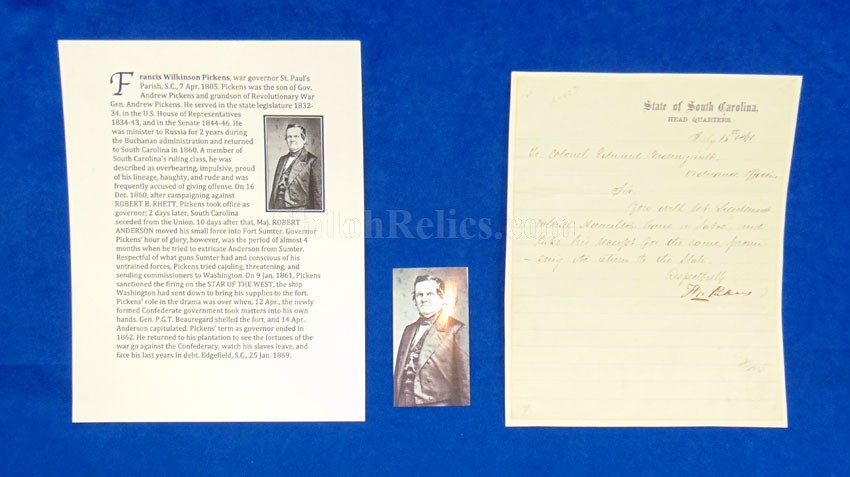 Francis Wilkinson Pickens, war governor St. Paul's
Parish, S.C., 7 Apr. 1805. Pickens was the son of Gov.
Andrew Pickens and grandson of Revolutionary War
Gen. Andrew Pickens. He served in the state legislature 1832-
34, in the U.S. House of Representatives
1834-43, and in the Senate 1844-46. He
was minister to Russia for 2 years during
the Buchanan administration and returned
to South Carolina in 1860. A member of
South Carolina's ruling class, he was
described as overbearing, impulsive, proud
of his lineage, haughty, and rude and was
frequently accused of giving offense. On 16
Dec. 1860, after campaigning against
ROBERT B. RHETT, Pickens took office as
governor; 2 days later, South Carolina
seceded from the Union. 10 days after that, Maj. ROBERT
ANDERSON moved his small force into Fort Sumter. Governor
Pickens' hour of glory, however, was the period of almost 4
months when he tried to extricate Anderson from Sumter.
Respectful of what guns Sumter had and conscious of his
untrained forces, Pickens tried cajoling, threatening, and
sending commissioners to Washington. On 9 Jan. 1861, Pickens
sanctioned the firing on the STAR OF THE WEST, the ship
Washington had sent down to bring his supplies to the fort.
Pickens' role in the drama was over when, 12 Apr., the newly
formed Confederate government took matters into his own
hands. Gen. P.G.T. Beauregard shelled the fort, and 14 Apr.
Anderson capitulated. Pickens' term as governor ended in
1862. He returned to his plantation to see the fortunes of the
war go against the Confederacy, watch his slaves leave, and
face his last years in debt. Edgefield, S.C., 25 Jan. 1869.
ShilohRelics.com
State of South Carolina,
HEAD QUARTERS
July
To Colonel Edward
Ordnance
Sir
You will let
Hamilton have a Sabre and
take his receipt for the same
to return to the State
Respectfully